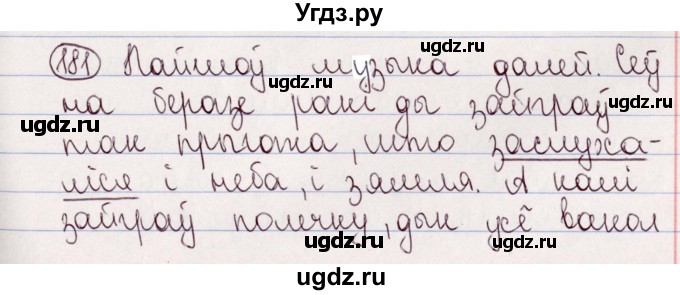 Угдз.ру
181 Пайшоў музыка далей. Сеў
на беразе ракі ды зайграў
так прыгожа, што заслуха-
ліся і неба, і зямля. А калі
зайграў полечку, дык усё вакол
ugdz.ru
ugdz.ru
ugdz.ru
ugdz.ru
ugdz.ru
ugdz.ru
ugdz.ru
ugdz.ru
ugdz.ru